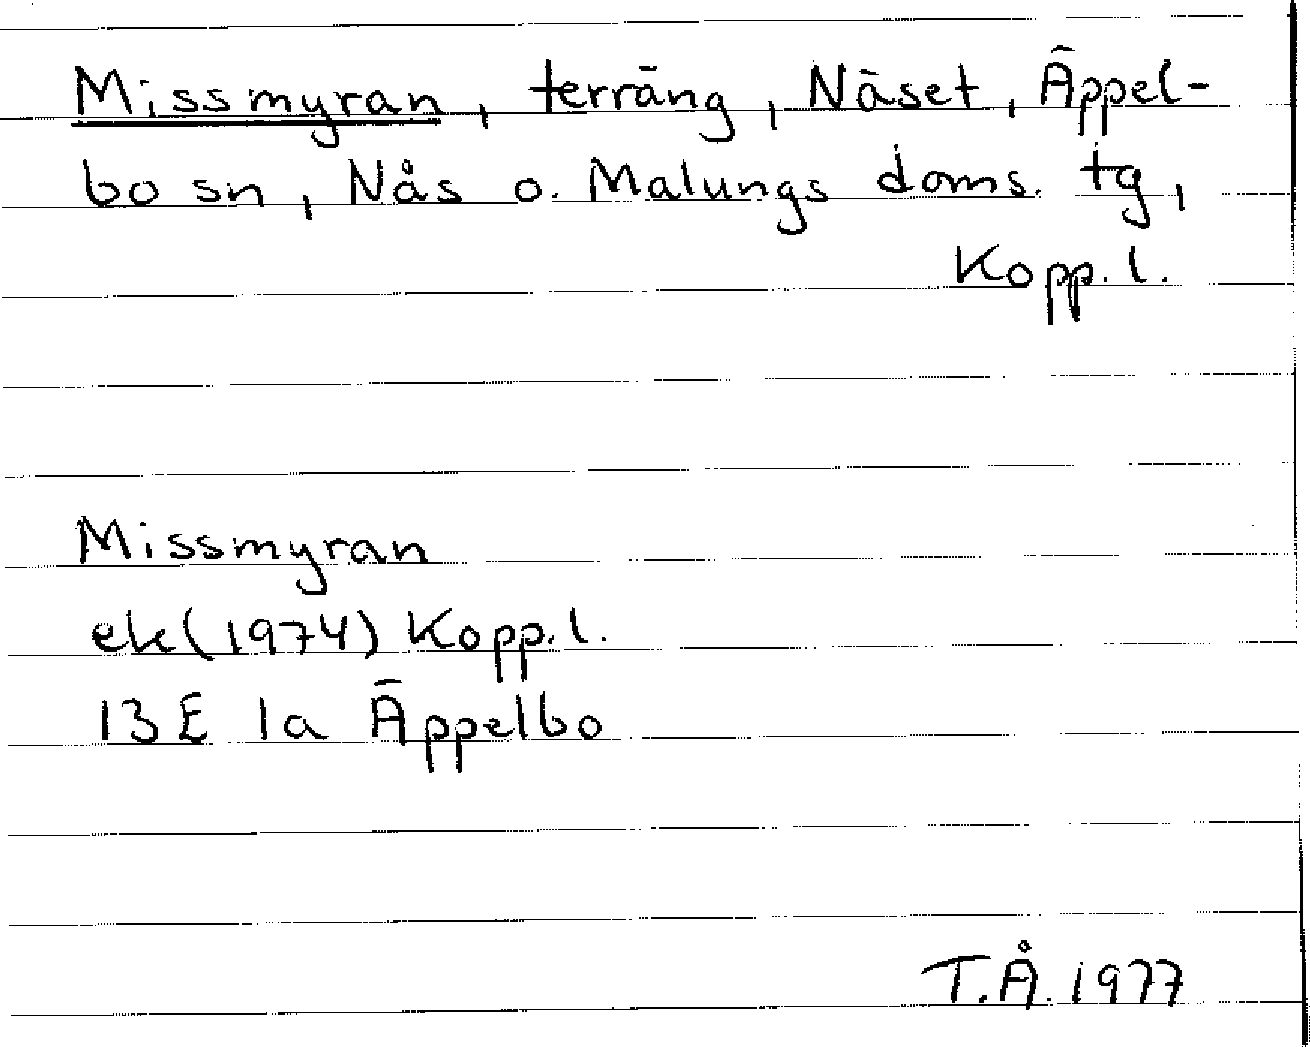 Missmyran, terräng, Näset, Äppel-
bo sn, Nås o. Malungs doms. tg,
Kopp. l.
Missmyran
ek(1974) Kopp. l.
13E 1a Äppelbo
T.Å. 1977